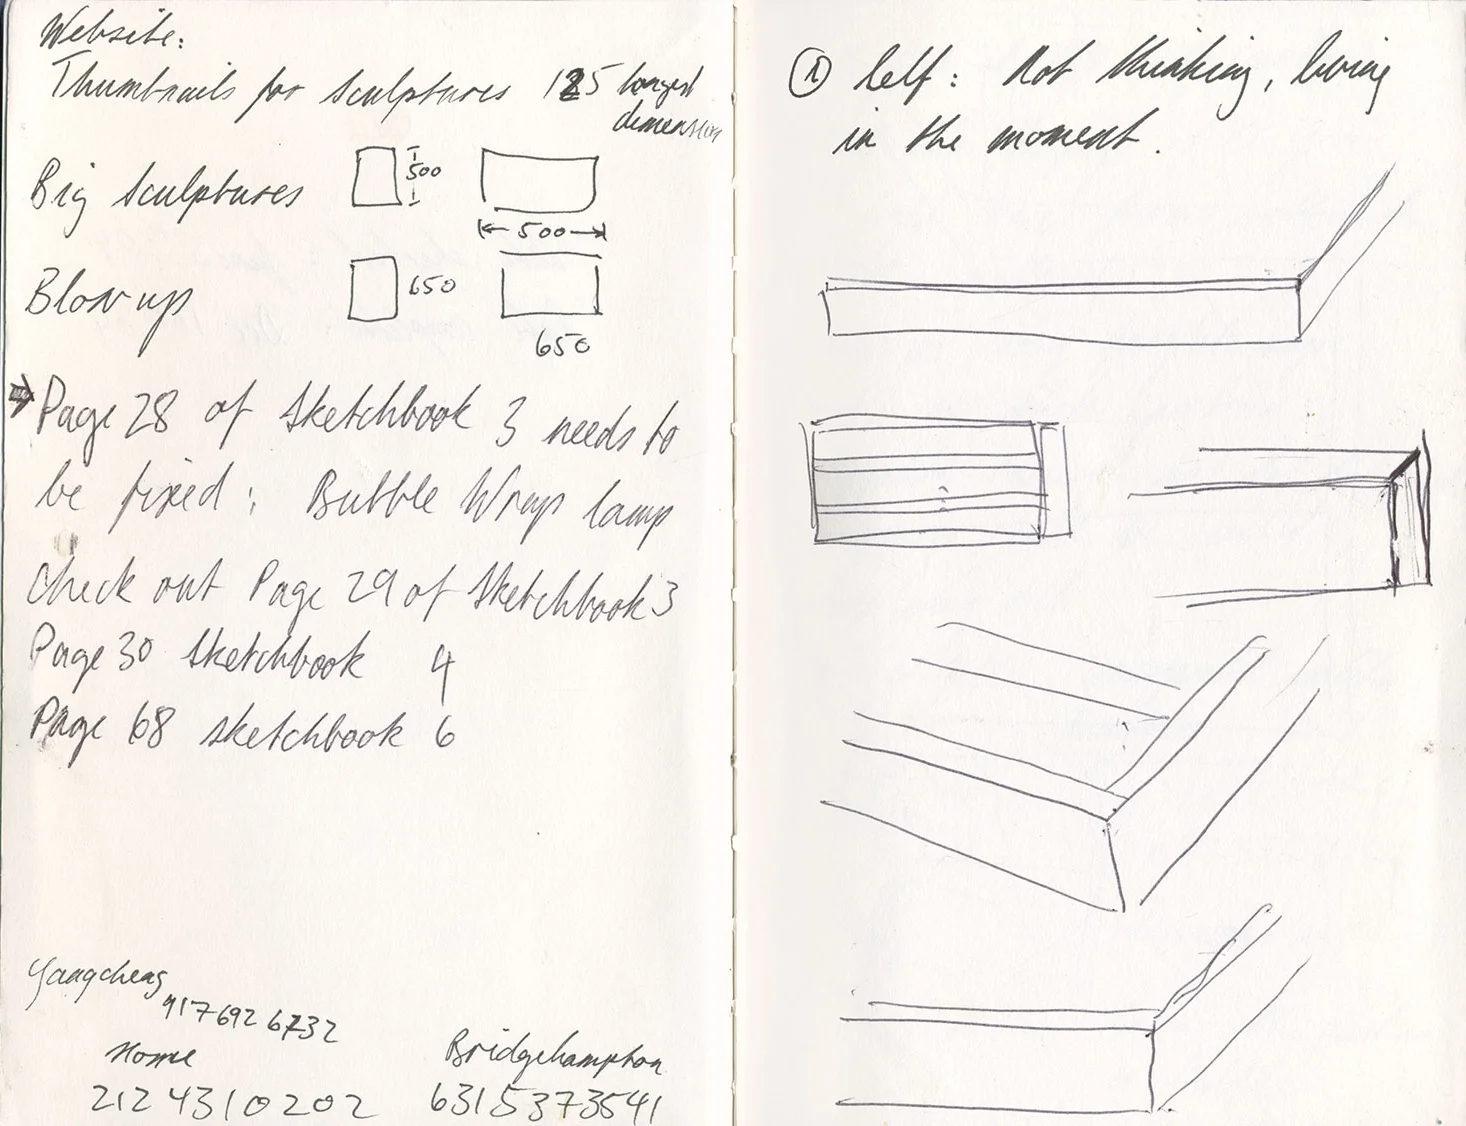 Website:
Thumbnails for sculptures 125 longest
dimension
Big sculptures 500
500
Blow up 650
650
Page 28 of Sketchbook 3 needs to
be fixed: Bubble Wrap lamp
Check out Page 29 of Sketchbook 3
Page 30 Sketchbook 4
Page 68 sketchbook 6
Yangcheng
917 692 6732
Home Bridgehampton
212 431 0202 631 537 3541
① left: Not thinking, being
in the moment.